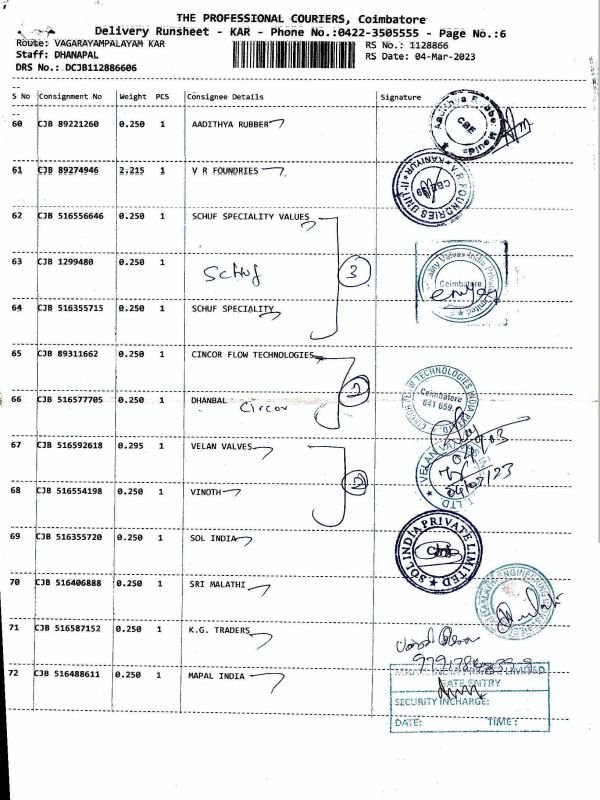 THE PROFESSIONAL COURIERS, Coimbatore
Delivery Runsheet - KAR - Phone No.:0422-3505555 - Page No.:6
Route: VAGARAYAMPALAYAM KAR
RS No.: 1128866
Staff: DHANAPAL
RS Date: 04-Mar-2023
DRS No.: DCJB112886606
S No Consignment No Weight PCS Consignee Details Signature
60 CJB 89221260 0.250 1 AADITHYA RUBBER
CBE
61 CJB 89274946 2.215 1 V R FOUNDRIES
V.R. FOUNDRIES UNIT-II KANIYUR
62 CJB 516556646 0.250 1 SCHUF SPECIALITY VALUES
63 CJB 1299480 0.250 1 Schuf 3
Coimbatore
64 CJB 516355715 0.250 1 SCHUF SPECIALITY
65 CJB 89311662 0.250 1 CINCOR FLOW TECHNOLOGIES
66 CJB 516577705 0.250 1 DHANBAL 2
Circor
Coimbatore
641 659.
67 CJB 516592618 0.295 1 VELAN VALVES
68 CJB 516554198 0.250 1 VINOTH 2
04/03/23
69 CJB 516355720 0.250 1 SOL INDIA
SOL INDIA PRIVATE LIMITED
70 CJB 516406888 0.250 1 SRI MALATHI
71 CJB 516587152 0.250 1 K.G. TRADERS
72 CJB 516488611 0.250 1 MAPAL INDIA
GATE ENTRY
SECURITY INCHARGE:
DATE: TIME: